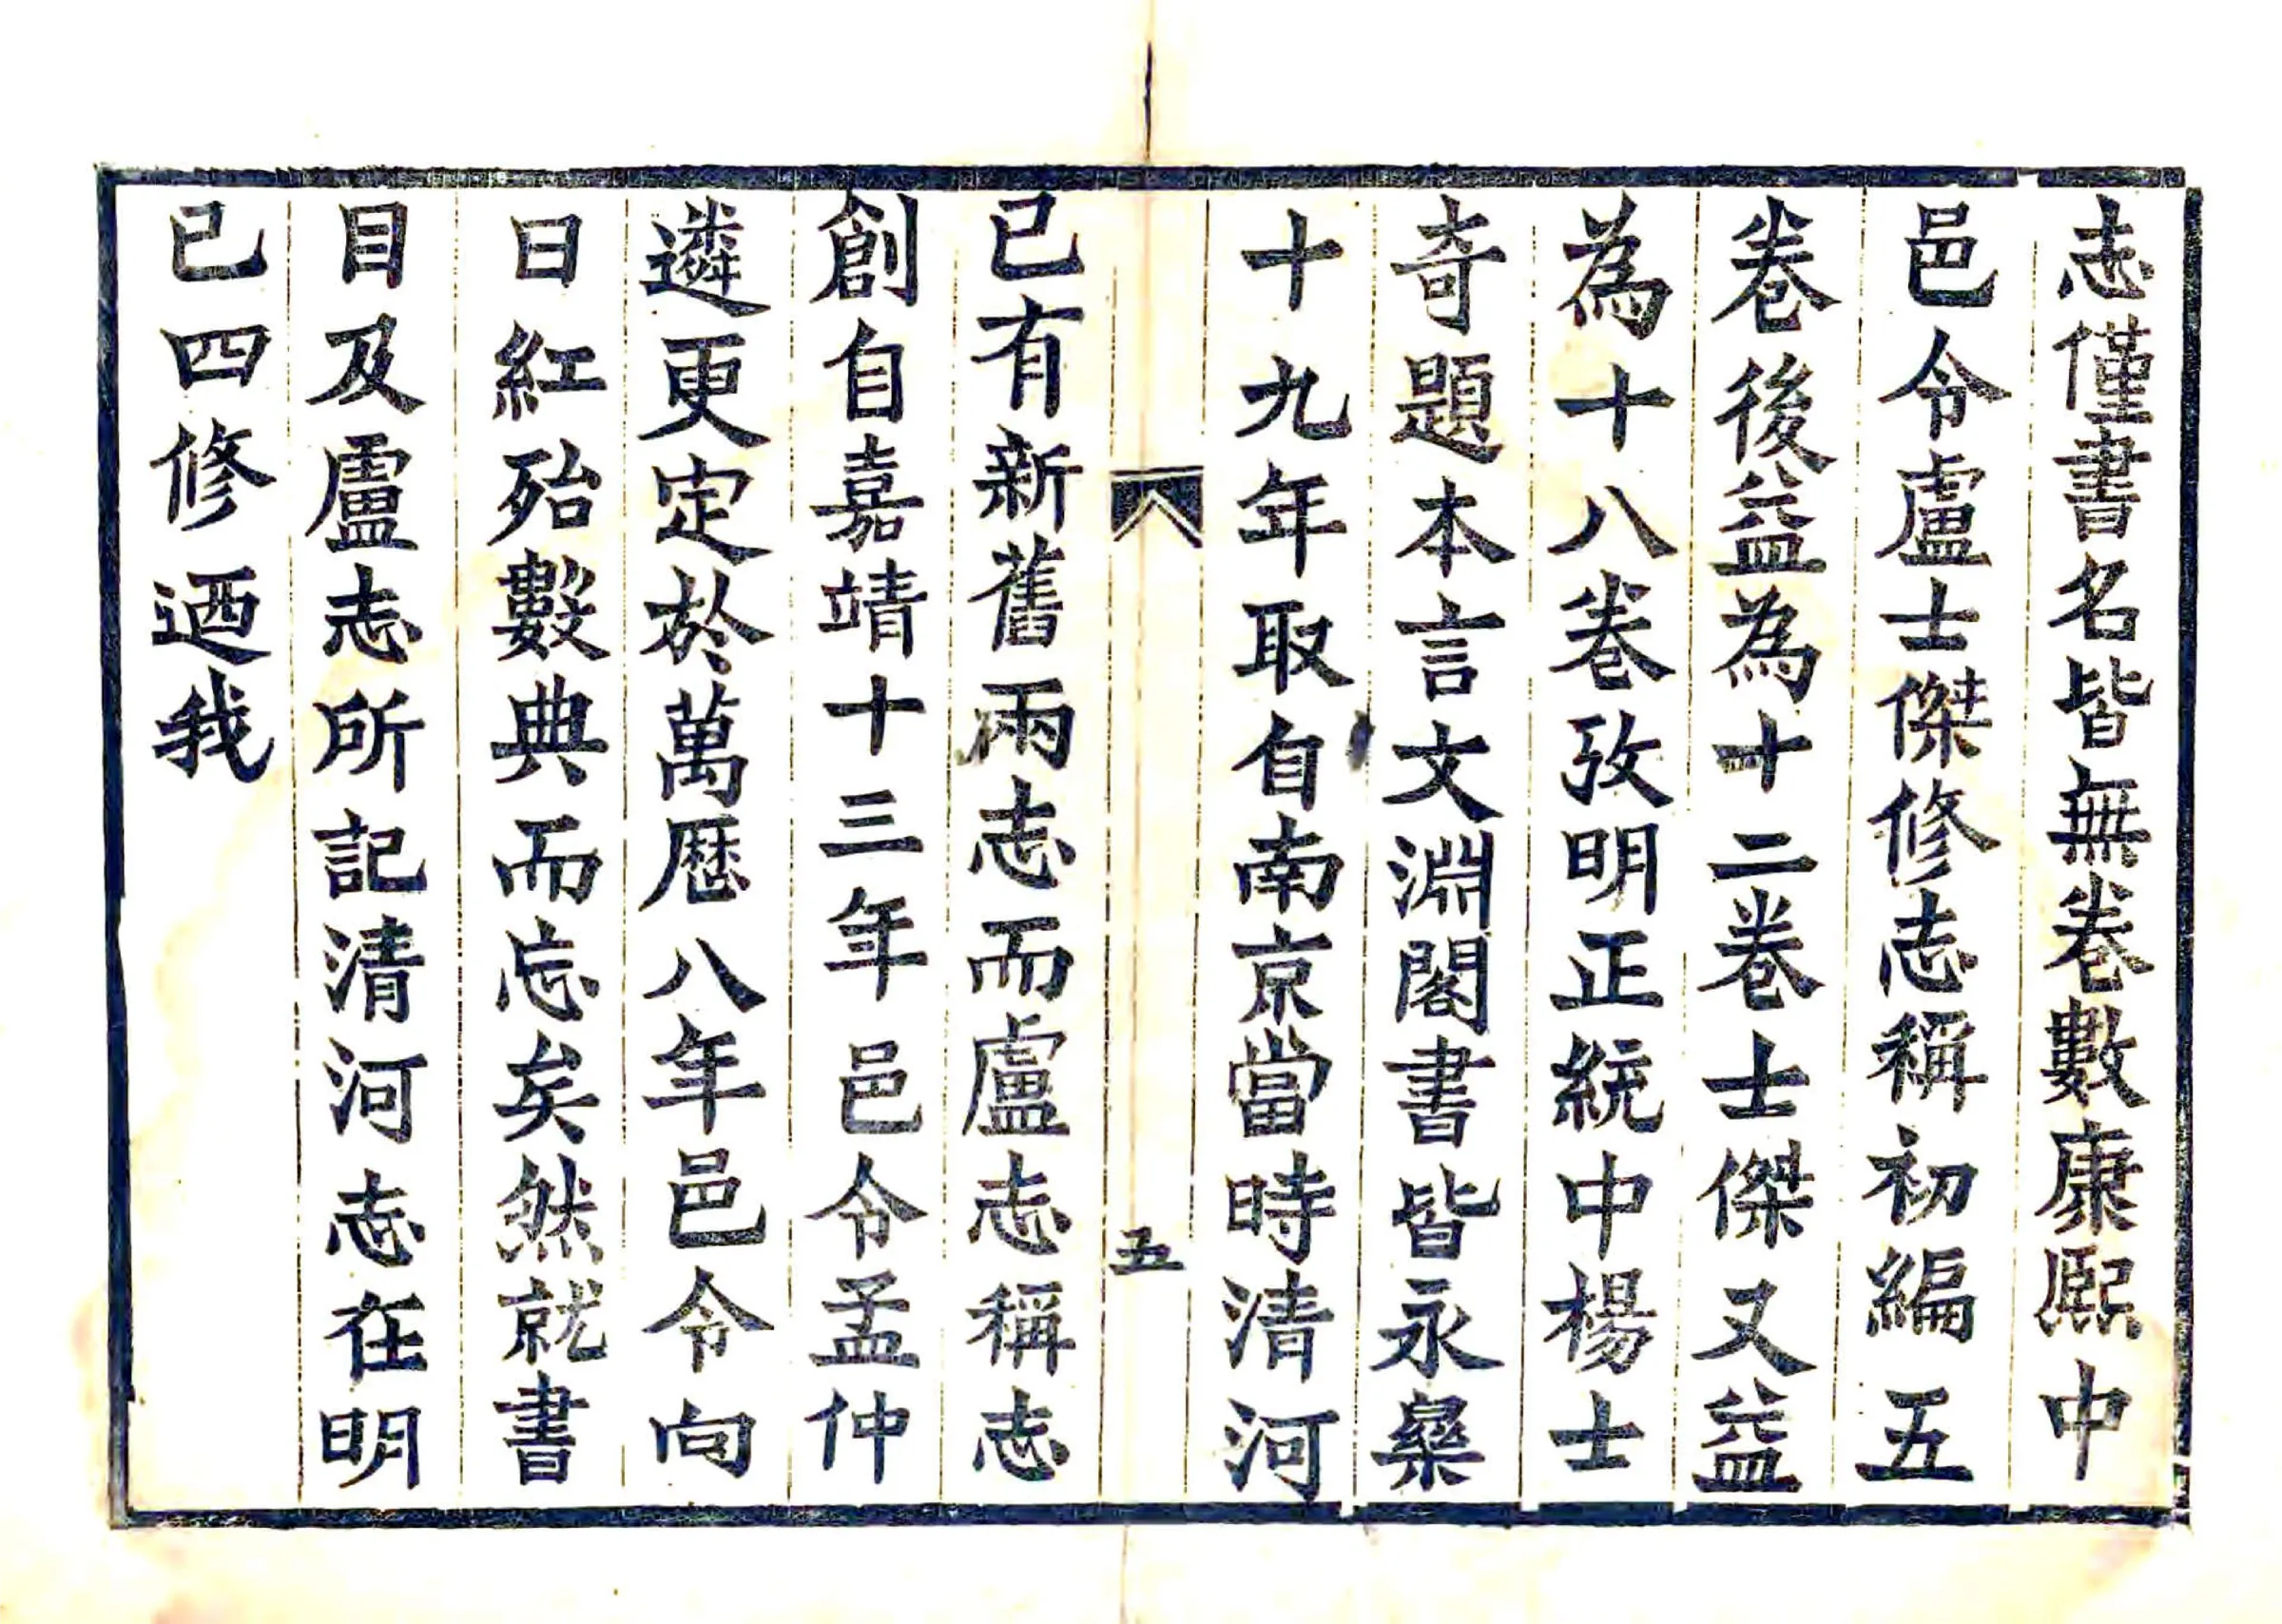 志僅書名皆無卷數康熙中
邑令盧士傑修志稱初編五
卷後益為十二卷士傑又益
為十八卷攷明正統中楊士
奇題本言文淵閣書皆永樂
十九年取自南京當時清河
五
已有新舊兩志而盧志稱志
創自嘉靖十三年邑令孟仲
遴更定於萬曆八年邑令向
日紅殆數典而忘矣然就書
目及盧志所記清河志在明
已四修迺我